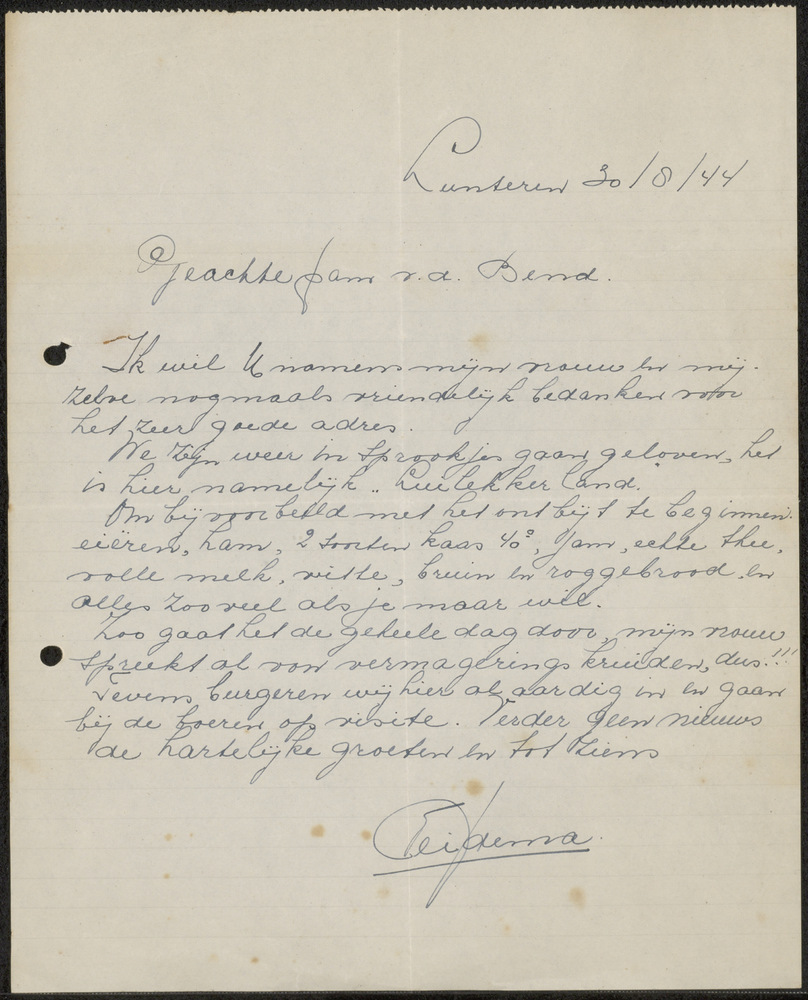 Lunteren 30/8/44
Geachte fam v.d. Bend.
Ik wil U namens mijn vrouw en mij-
zelve nogmaals vriendelijk bedanken voor
het zeer goede adres.
We zijn weer in sprookjes gaan geloven, het
is hier namelijk „Luilekkerland."
Om bijvoorbeeld met het ontbijt te beginnen.
eiëren, ham, 2 soorten kaas 40+, jam, echte thee,
volle melk, witte, bruin en roggebrood, en
alles zooveel als je maar wil.
Zoo gaat het de geheele dag door, mijn vrouw
spreekt al van vermageringskruiden, dus!!!
Tevens burgeren wij hier al aardig in en gaan
bij de boeren op visite. Verder geen nieuws
de hartelijke groeten en tot ziens